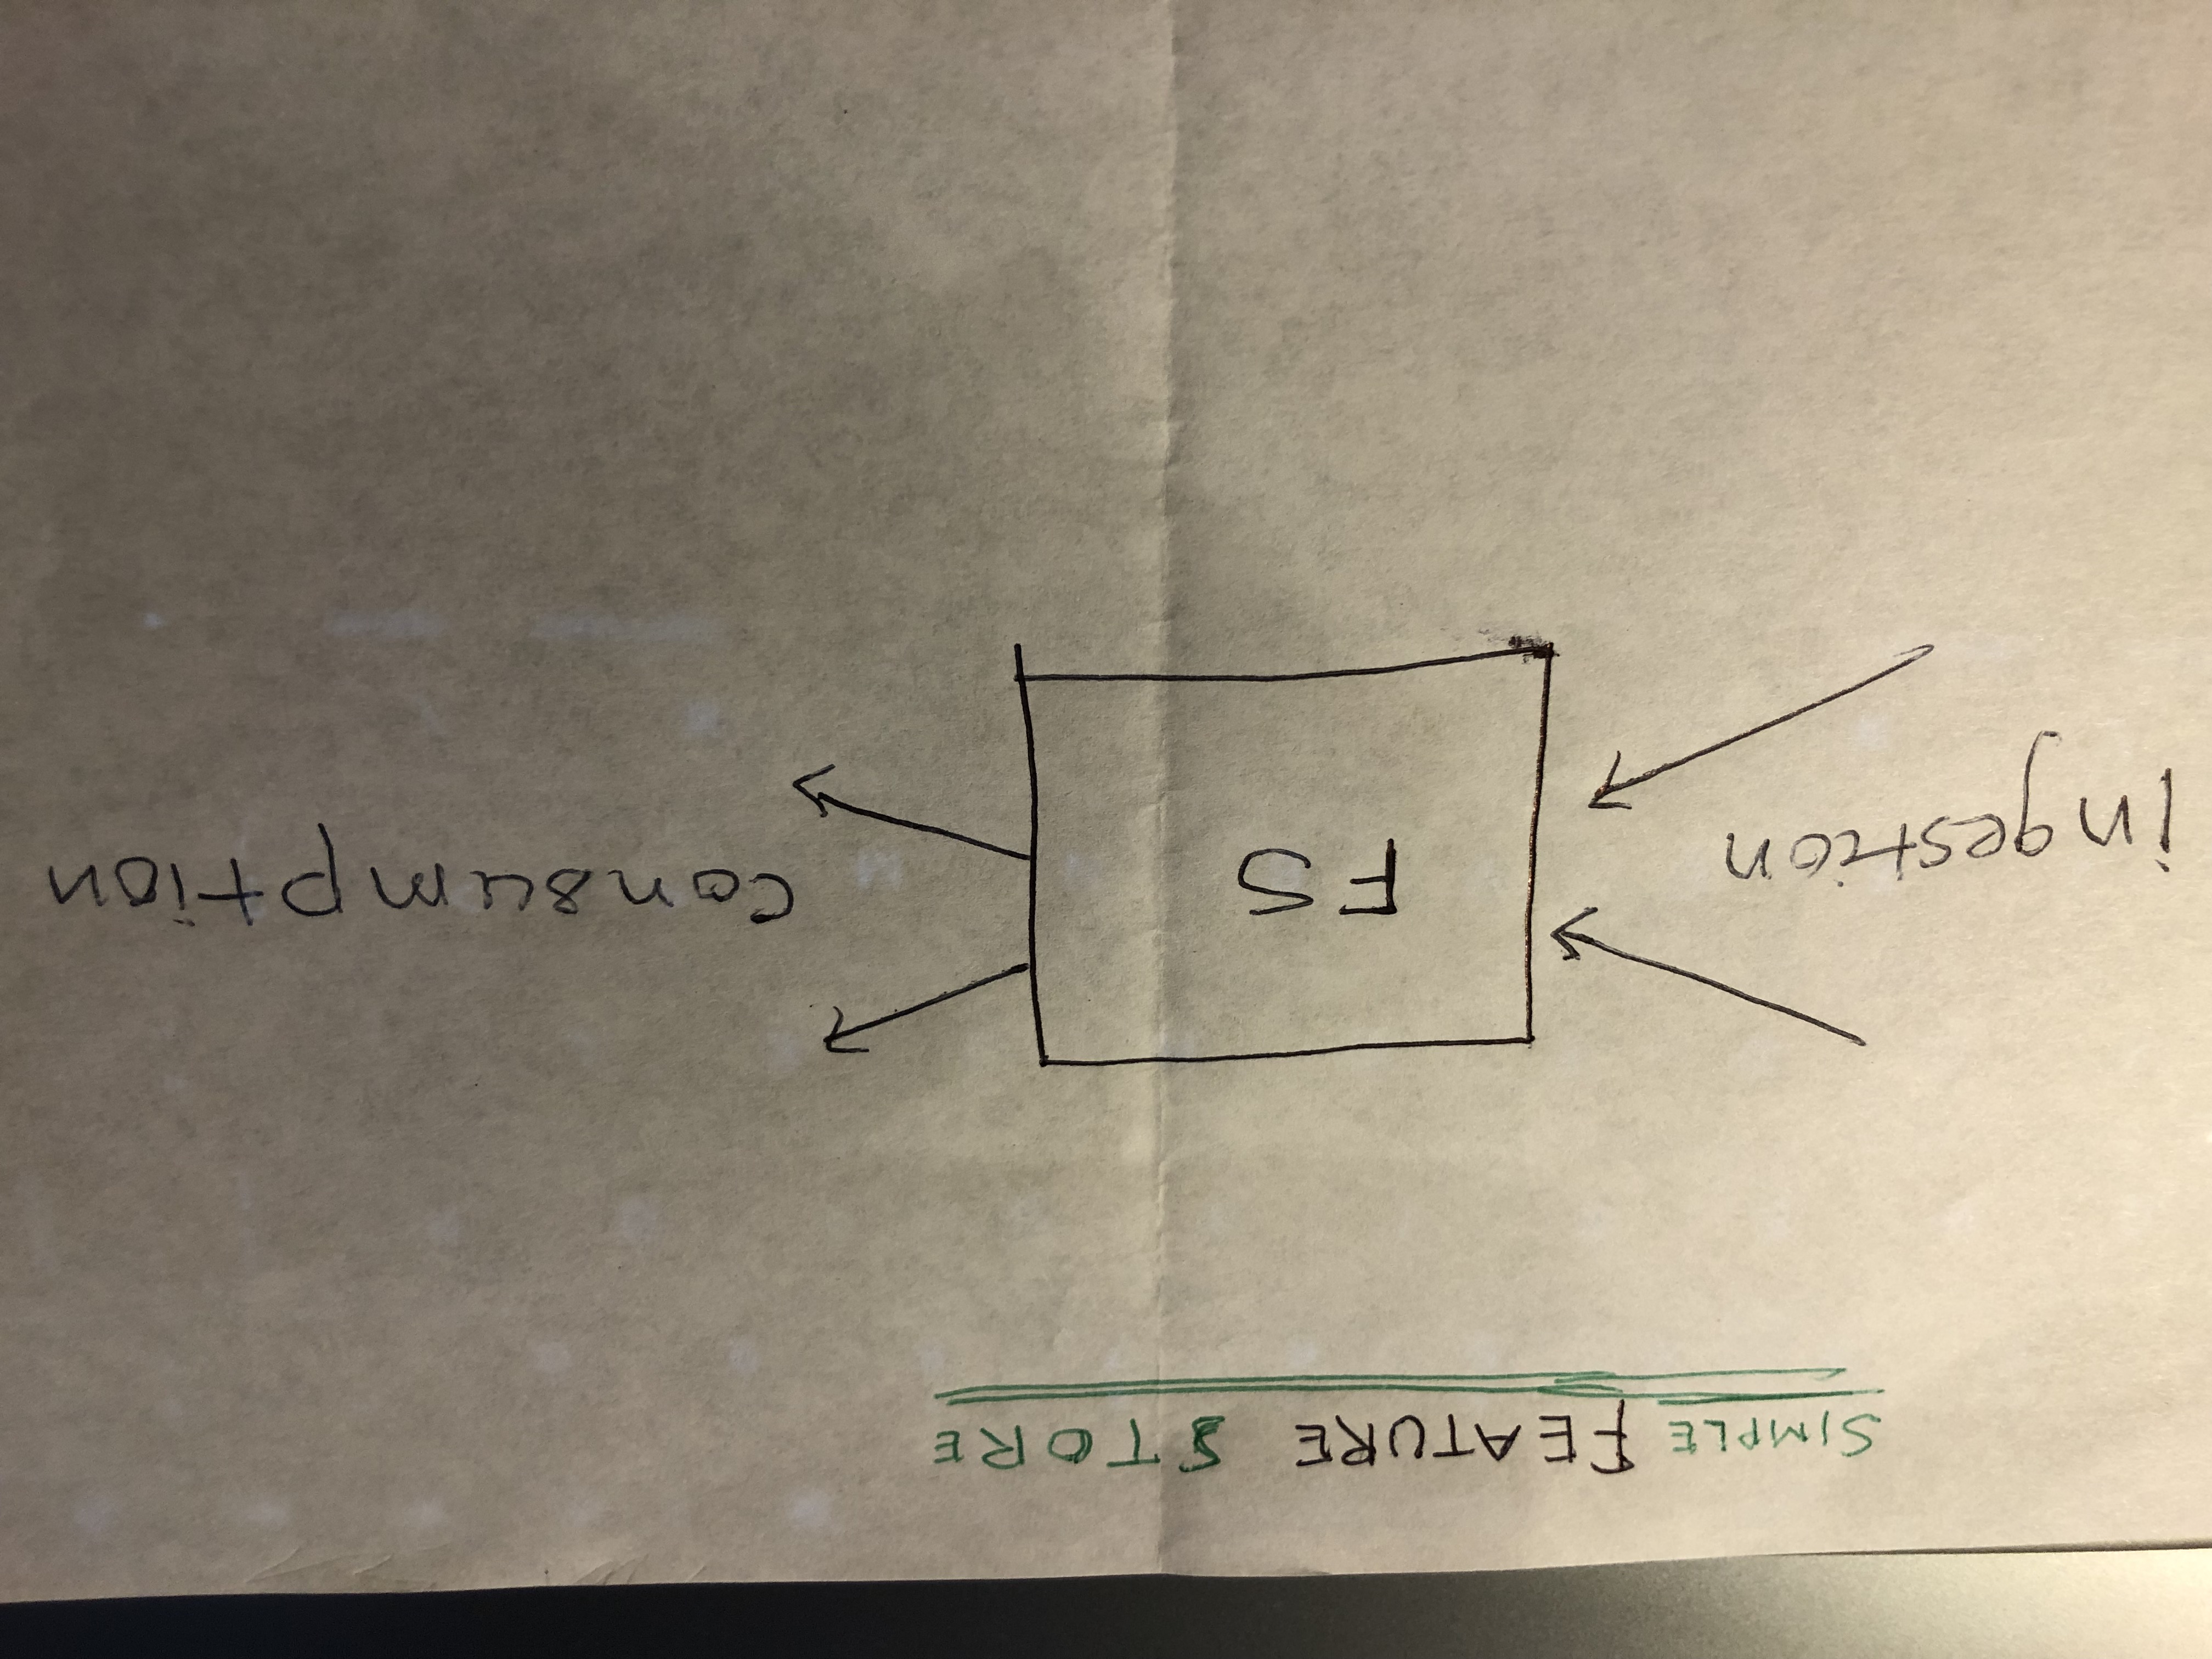 SIMPLE FEATURE STORE
ingestion
FS
consumption